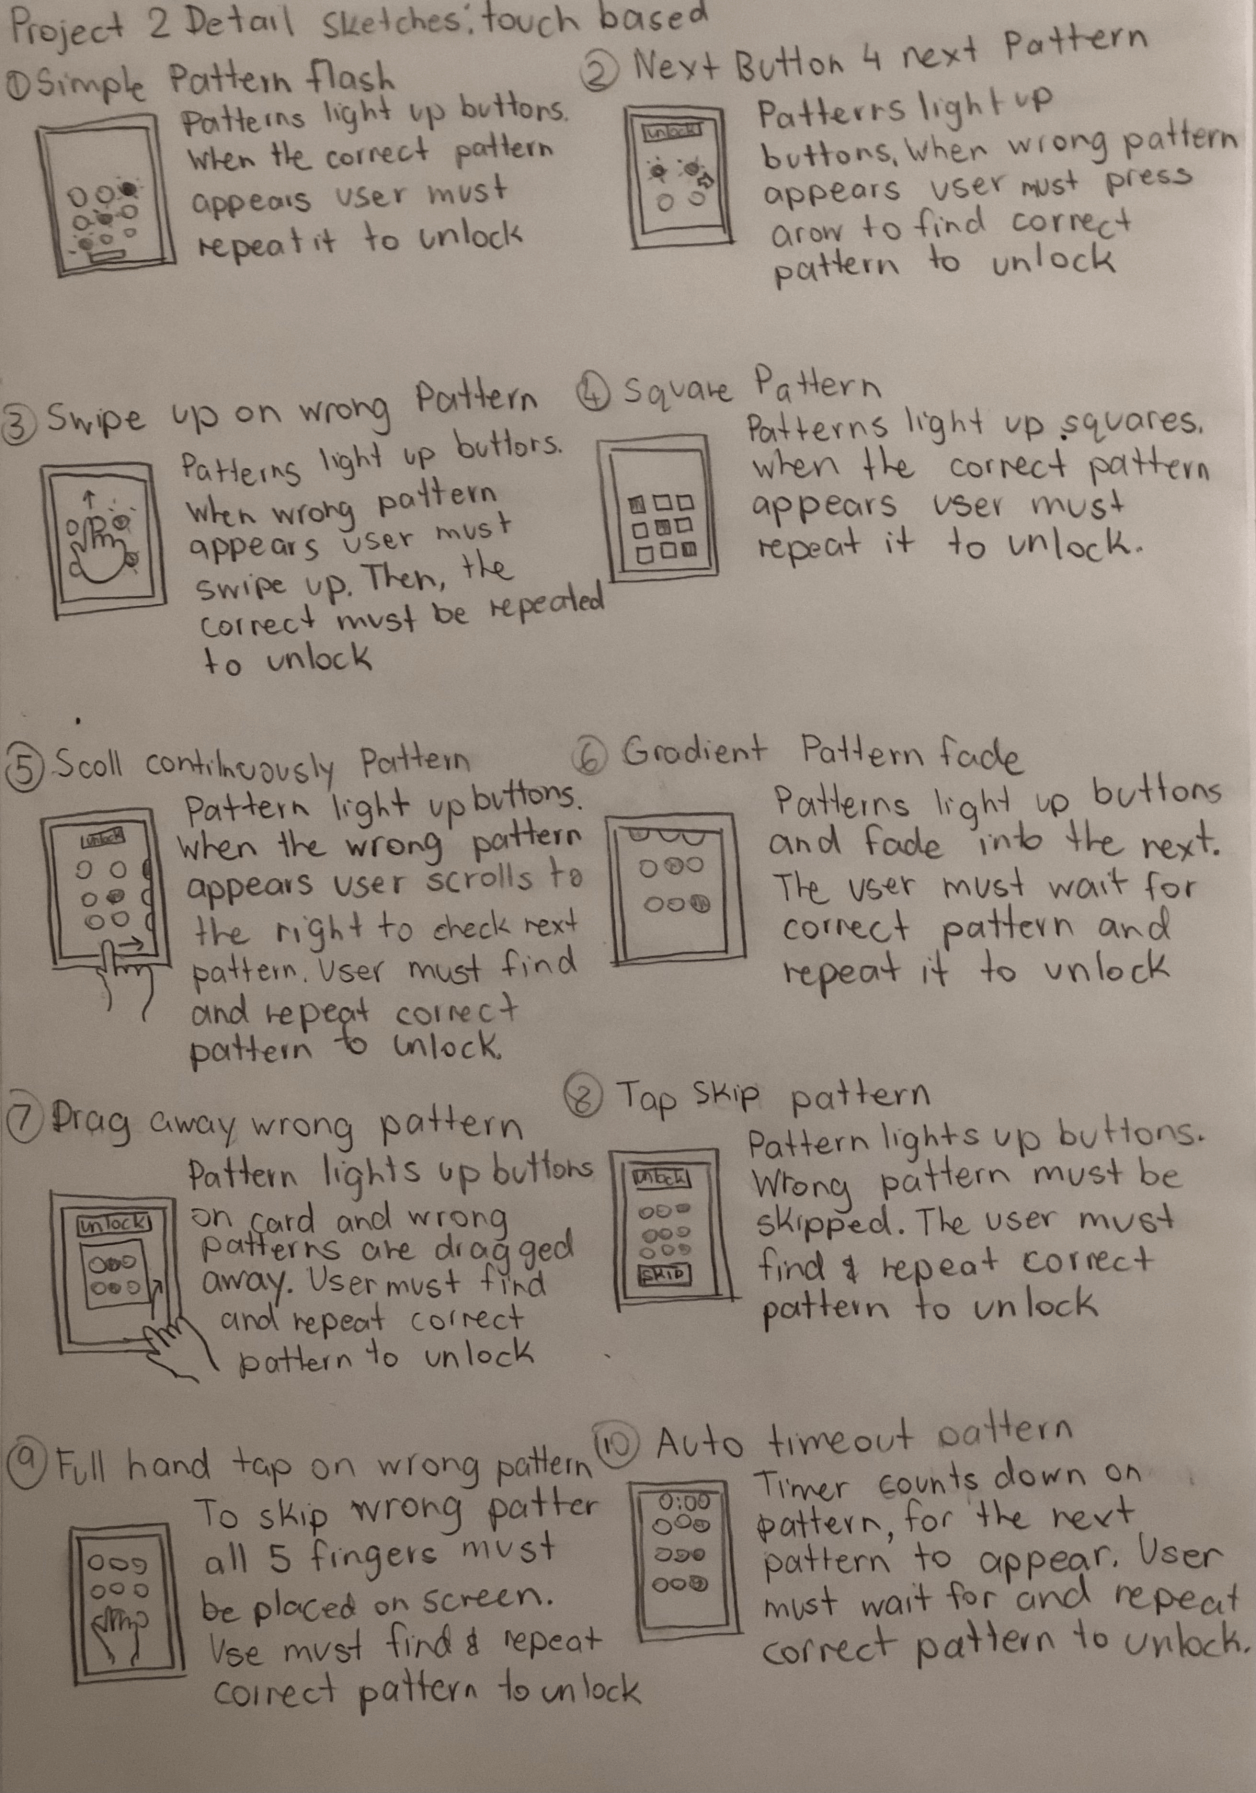 Project 2 Detail sketches: touch based
① Simple Pattern flash
Patterns light up buttons.
When the correct pattern
appears user must
repeat it to unlock
② Next Button 4 next Pattern
unlock
Patterns light up
buttons. When wrong pattern
appears user must press
arow to find correct
pattern to unlock
③ Swipe up on wrong Pattern
Patterns light up buttons.
When wrong pattern
appears user must
swipe up. Then, the
correct must be repeated
to unlock
④ Square Pattern
Patterns light up squares.
when the correct pattern
appears user must
repeat it to unlock.
⑤ Scoll continuously Pattern
unlock
Pattern light up buttons.
When the wrong pattern
appears user scrolls to
the right to check next
pattern. User must find
and repeat correct
pattern to unlock.
⑥ Gradient Pattern fade
Patterns light up buttons
and fade into the next.
The user must wait for
correct pattern and
repeat it to unlock
⑦ Drag away wrong pattern
unlock
Pattern lights up buttons
on card and wrong
patterns are dragged
away. User must find
and repeat correct
pattern to unlock
⑧ Tap Skip pattern
unlock
SKIP
Pattern lights up buttons.
Wrong pattern must be
skipped. The user must
find & repeat correct
pattern to unlock
⑨ Full hand tap on wrong pattern
To skip wrong patter
all 5 fingers must
be placed on screen.
Use must find & repeat
correct pattern to unlock
⑩ Auto timeout pattern
0:00
Timer counts down on
pattern, for the next
pattern to appear. User
must wait for and repeat
correct pattern to unlock.